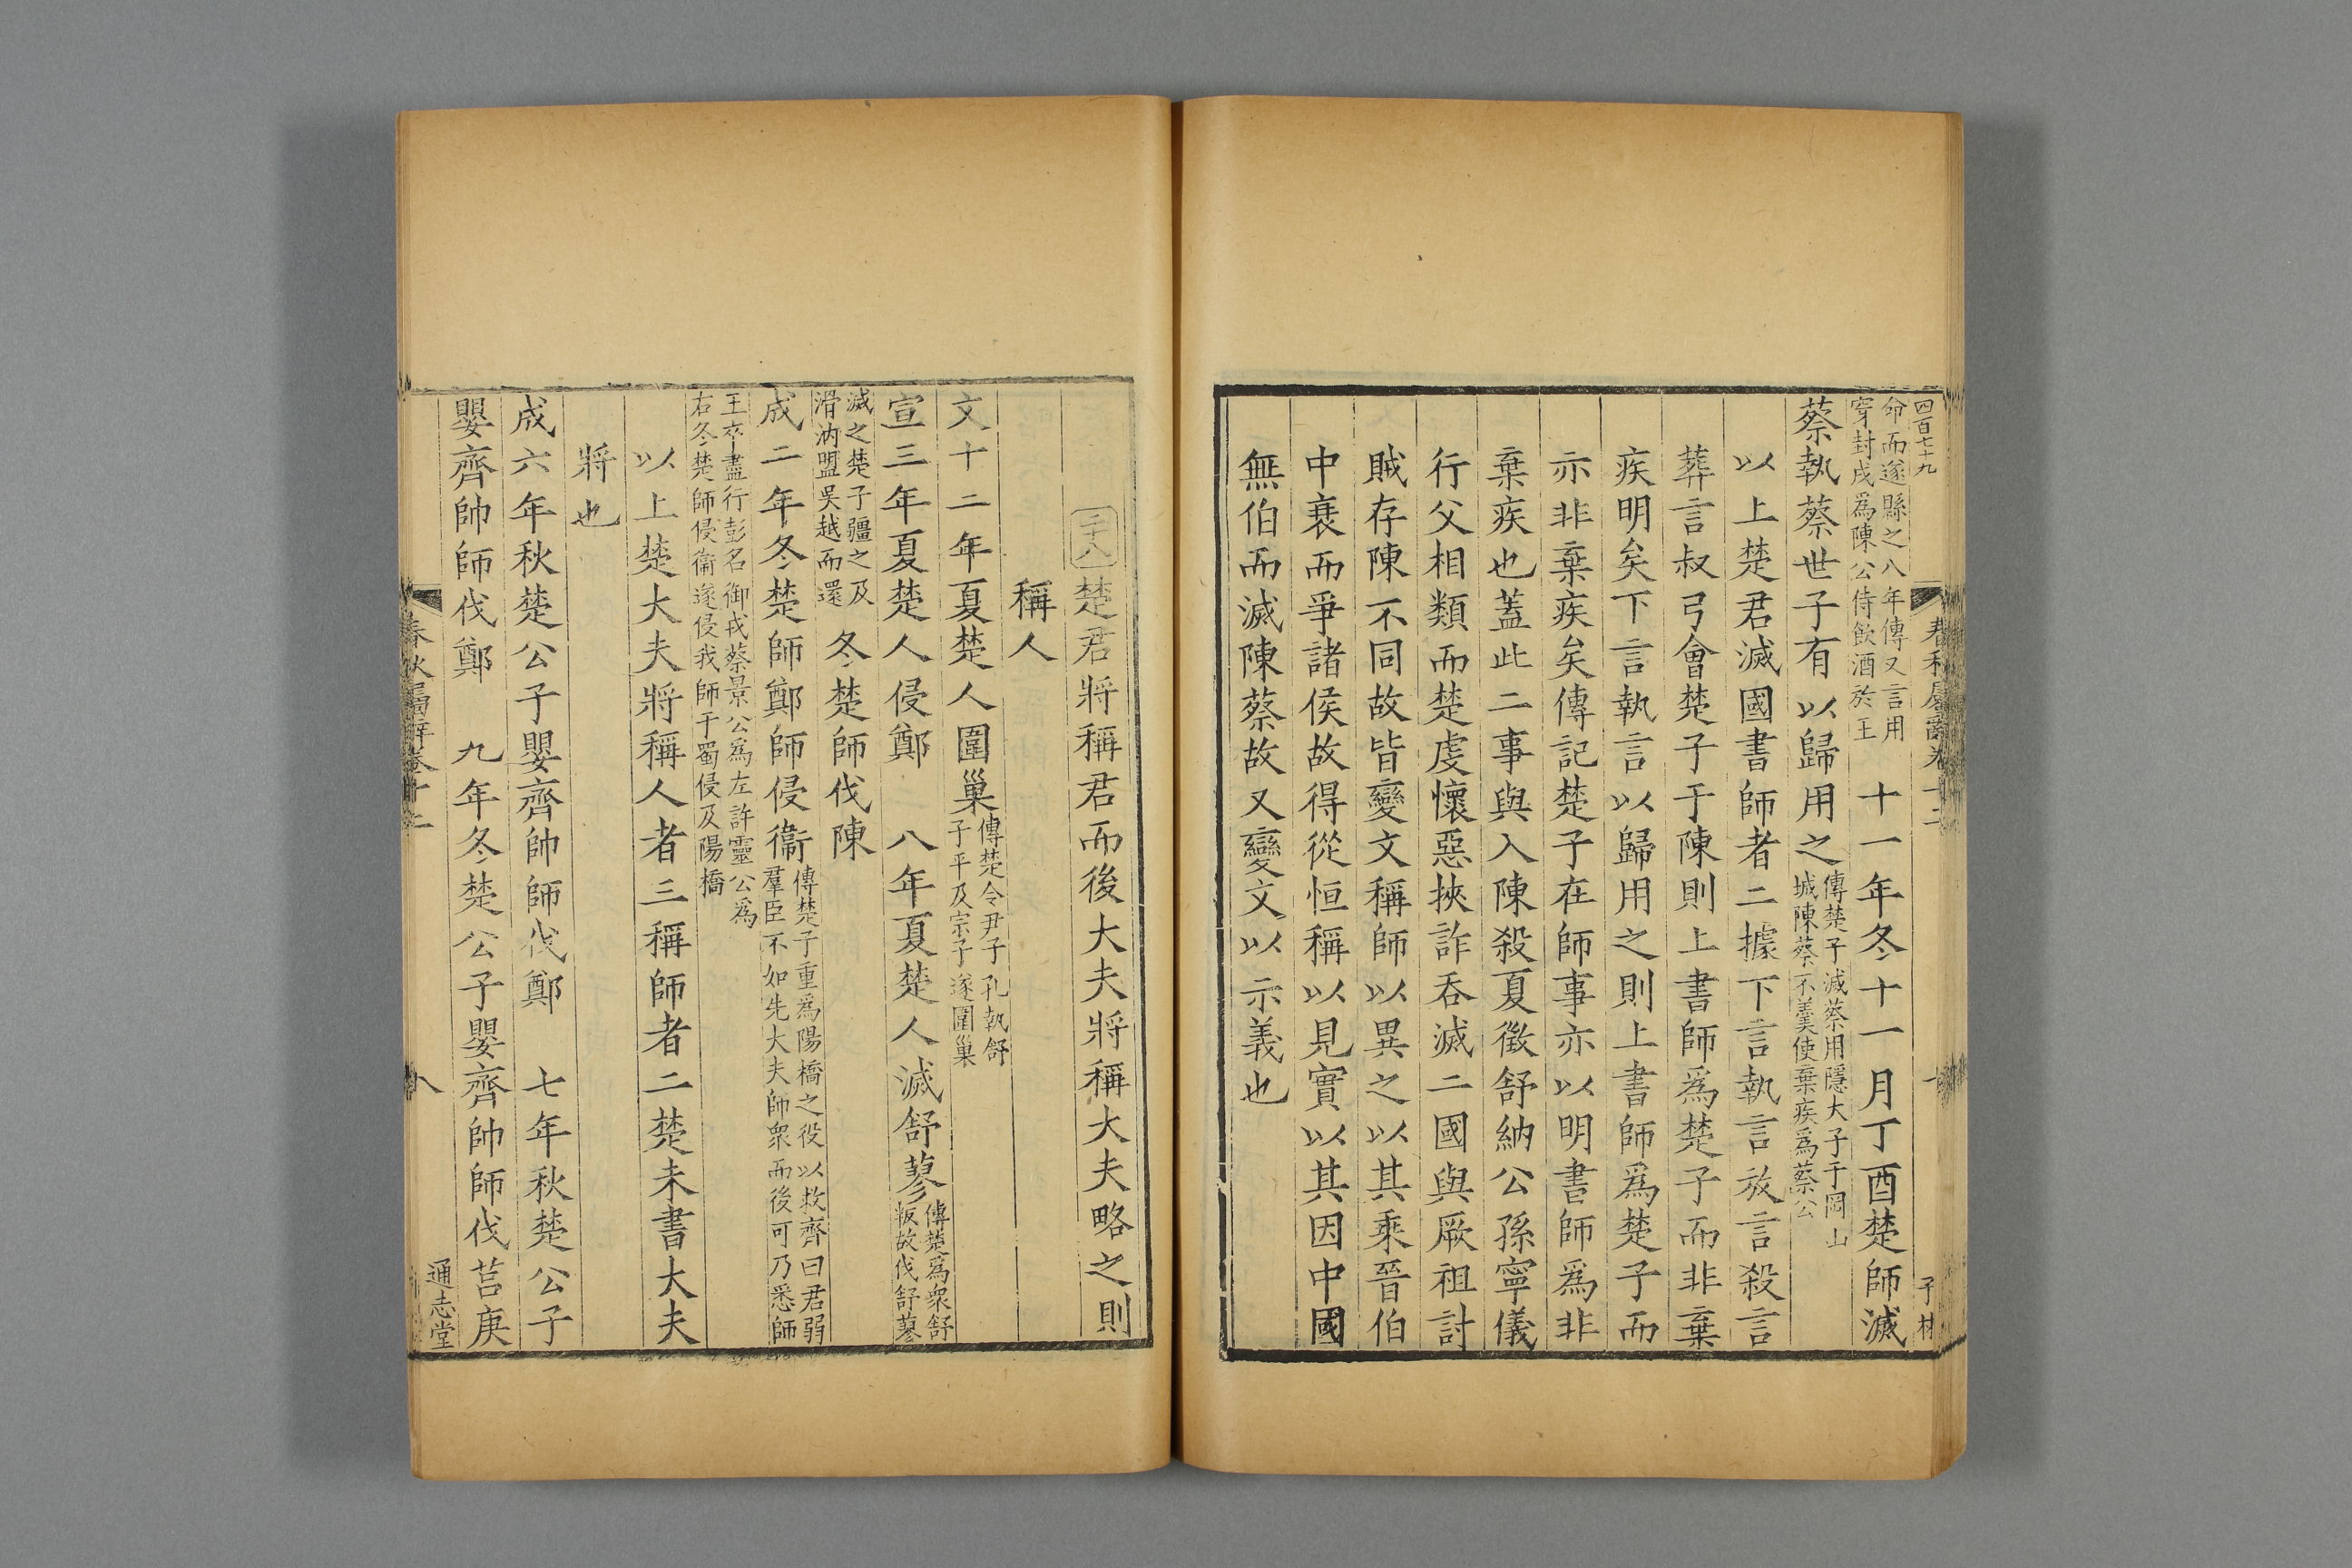 四百七十九
春秋屬辭卷十二
子材
命而遂縣之八年傳又言用
穿封戌爲陳公侍飲酒於王
十一年冬十一月丁酉楚師滅
蔡執蔡世子有以歸用之
傳楚子滅蔡用隱大子于岡山
城陳蔡不羹使棄疾爲蔡公
以上楚君滅國書師者二據下言執言放言殺言
葬言叔弓會楚子于陳則上書師爲楚子而非棄
疾明矣下言執言以歸用之則上書師爲楚子而
亦非棄疾矣傳記楚子在師事亦以明書師爲非
棄疾也蓋此二事與入陳殺夏徵舒納公孫寧儀
行父相類而楚虔懷惡挾詐吞滅二國與厥祖討
賊存陳不同故皆變文稱師以異之以其乘晉伯
中衰而爭諸侯故得從恒稱以見實以其因中國
無伯而滅陳蔡故又變文以示義也
二十八
楚君將稱君而後大夫將稱大夫略之則
稱人
文十二年夏楚人圍巢
傳楚令尹子孔執舒
子平及宗子遂圍巢
宣三年夏楚人侵鄭
八年夏楚人滅舒蓼
傳楚爲衆舒
叛故伐舒蓼
滅之楚子疆之及
滑汭盟吳越而還
冬楚師伐陳
成二年冬楚師鄭師侵衞
傳楚子重爲陽橋之役以救齊曰君弱
羣臣不如先大夫師衆而後可乃悉師
王卒盡行彭名御戎蔡景公爲左許靈公爲
右冬楚師侵衞遂侵我師于蜀侵及陽橋
以上楚大夫將稱人者三稱師者二楚未書大夫
將也
成六年秋楚公子嬰齊帥師伐鄭　七年秋楚公子
嬰齊帥師伐鄭　九年冬楚公子嬰齊帥師伐莒庚
春秋屬辭卷十二
八
通志堂